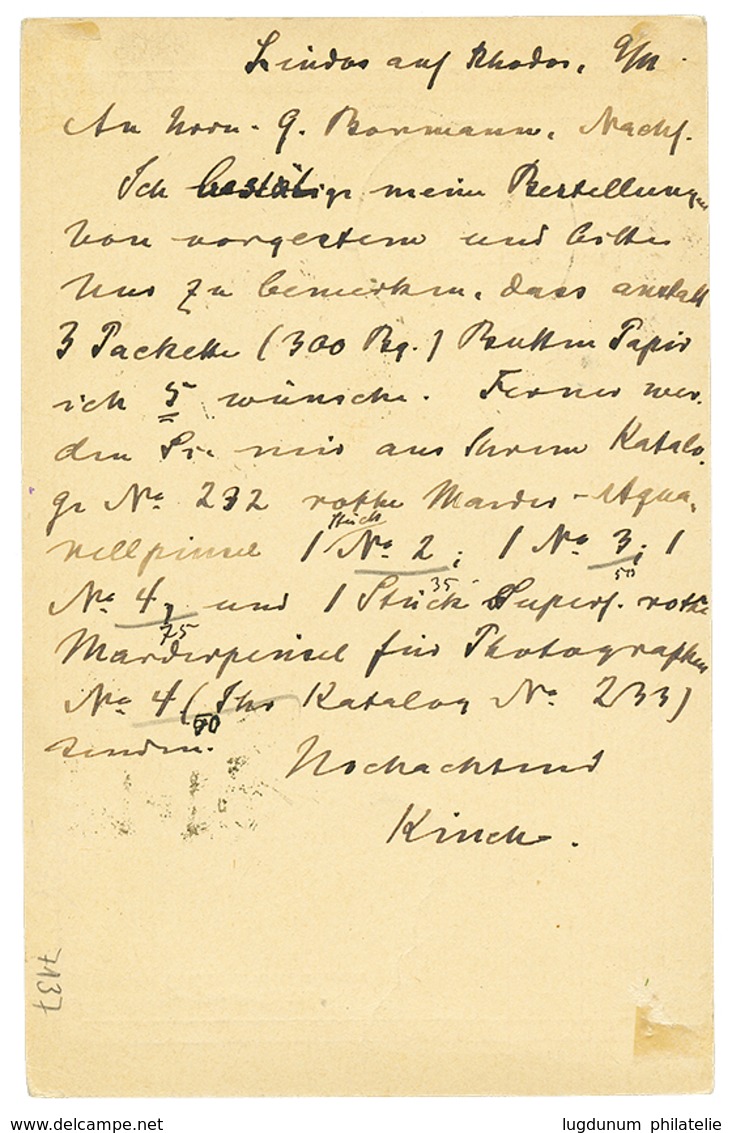 Lindos auf Rhodos, 9/11.
An Herrn G. Bormann, Nachf.
Ich bestätige meine Bestellungen
von vorgestern und bitte
nur zu bemerken, dass anstatt
3 Packette (300 Bg.) Butten Papir
ich 5 wünsche. Ferner wer-
den Sie mir aus Ihrem Katalo-
ge No 232 rothe Marder-Aqua-
rellpinsel 1 Stück No 2, 1 No 3, 1
35 50
No 4, und 1 Stück Superf. rothe
75
Marderpinsel für Photographen
No 4 (Ihr Katalog No 233)
90
senden.
Hochachtend
Kinch.
7137
www.delcampe.net
lugdunum philatelie